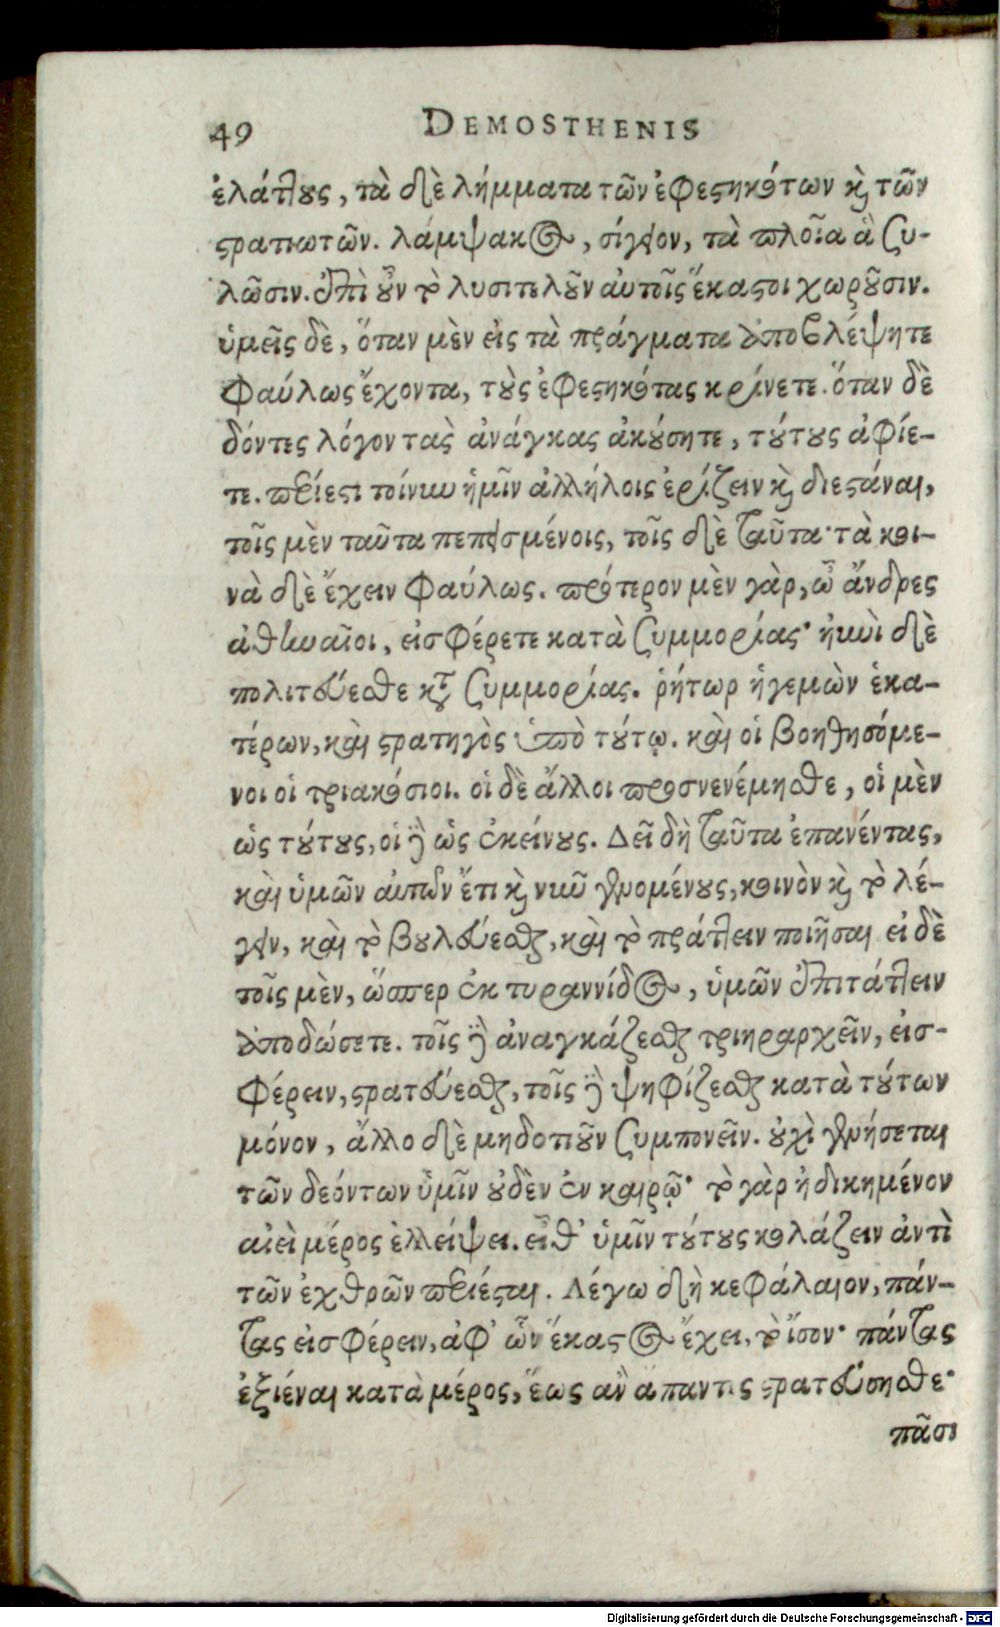 49 DEMOSTHENIS
ἐλάττους, τὰ δὲ λήμματα τῶν ἐφεστηκότων καὶ τῶν
στρατιωτῶν. λάμψακος, σίγειον, τὰ πλοῖα ἃ συ-
λῶσιν. ἐπὶ οὖν τὸ λυσιτελοῦν αὐτοῖς ἕκαστοι χωροῦσιν.
ὑμεῖς δὲ, ὅταν μὲν εἰς τὰ πράγματα ἀποβλέψητε
φαύλως ἔχοντα, τοὺς ἐφεστηκότας κρίνετε. ὅταν δὲ
δόντες λόγον τὰς ἀνάγκας ἀκούσητε, τούτους ἀφίε-
τε. περίεστι τοίνυν ἡμῖν ἀλλήλοις ἐρίζειν καὶ διεστάναι,
τοῖς μὲν ταῦτα πεπεισμένοις, τοῖς δὲ ταῦτα· τὰ κοι-
νὰ δὲ ἔχειν φαύλως. πρότερον μὲν γὰρ, ὦ ἄνδρες
ἀθηναῖοι, εἰσφέρετε κατὰ συμμορίας· νυνὶ δὲ
πολιτεύεσθε κατὰ συμμορίας. ῥήτωρ ἡγεμὼν ἑκα-
τέρων, καὶ στρατηγὸς ὑπὸ τούτῳ. καὶ οἱ βοηθησόμε-
νοι οἱ τριακόσιοι. οἱ δὲ ἄλλοι προσνενέμησθε, οἱ μὲν
ὡς τούτους, οἱ δὲ ὡς ἐκείνους. Δεῖ δὴ ταῦτα ἐπανέντας,
καὶ ὑμῶν αὐτῶν ἔτι καὶ νῦν γενομένους, κοινὸν καὶ τὸ λέ-
γειν, καὶ τὸ βουλεύεσθαι, καὶ τὸ πράττειν ποιῆσαι εἰ δὲ
τοῖς μὲν, ὥσπερ ἐκ τυραννίδος, ὑμῶν ἐπιτάττειν
ἀποδώσετε. τοῖς δὲ ἀναγκάζεσθαι τριηραρχεῖν, εἰσ-
φέρειν, στρατεύεσθαι, τοῖς δὲ ψηφίζεσθαι κατὰ τούτων
μόνον, ἄλλο δὲ μηδοτιοῦν συμπονεῖν. οὐχὶ γενήσεται
τῶν δεόντων ὑμῖν οὐδὲν ἐν καιρῷ· τὸ γὰρ ἠδικημένον
αἰεὶ μέρος ἐλλείψει. εἶθ' ὑμῖν τούτους κολάζειν ἀντὶ
τῶν ἐχθρῶν περιέσται. Λέγω δὴ κεφάλαιον, πάν-
τας εἰσφέρειν, ἀφ' ὧν ἕκαστος ἔχει, τὸ ἴσον· πάντας
ἐξιέναι κατὰ μέρος, ἕως ἂν ἅπαντες στρατεύσησθε·
πᾶσι
Digitalisierung gefördert durch die Deutsche Forschungsgemeinschaft - DFG